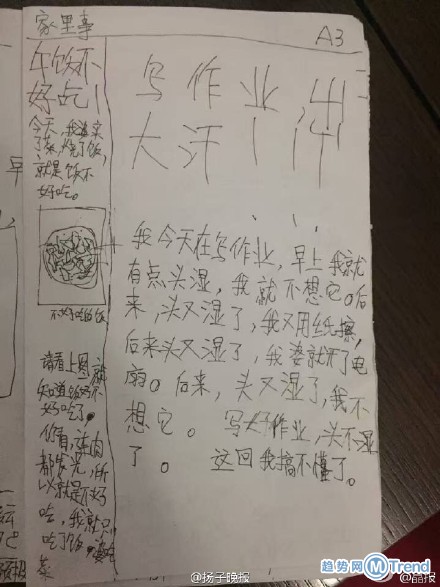 家里事
A3
午饭不
好吃！
今天，我婆买
了菜，烧了饭，
就是饭不
好吃。
不好吃的饭
请看上图，就
知道饭好不
好吃了。
你看，连肉
都发光，所
以就是不好
吃，我就只
吃了饭。
菜
写作业，出
大汗！！！
我今天在写作业，早上我就
有点头湿，我就不想它。后
来，头又湿了，我又用纸擦，
后来头又湿了，我婆就开了电
扇。后来，头又湿了，我不
想它。写好作业，头不湿
了。这回我搞不懂了。
@扬子晚报
趋势网 MTrend
@晶报